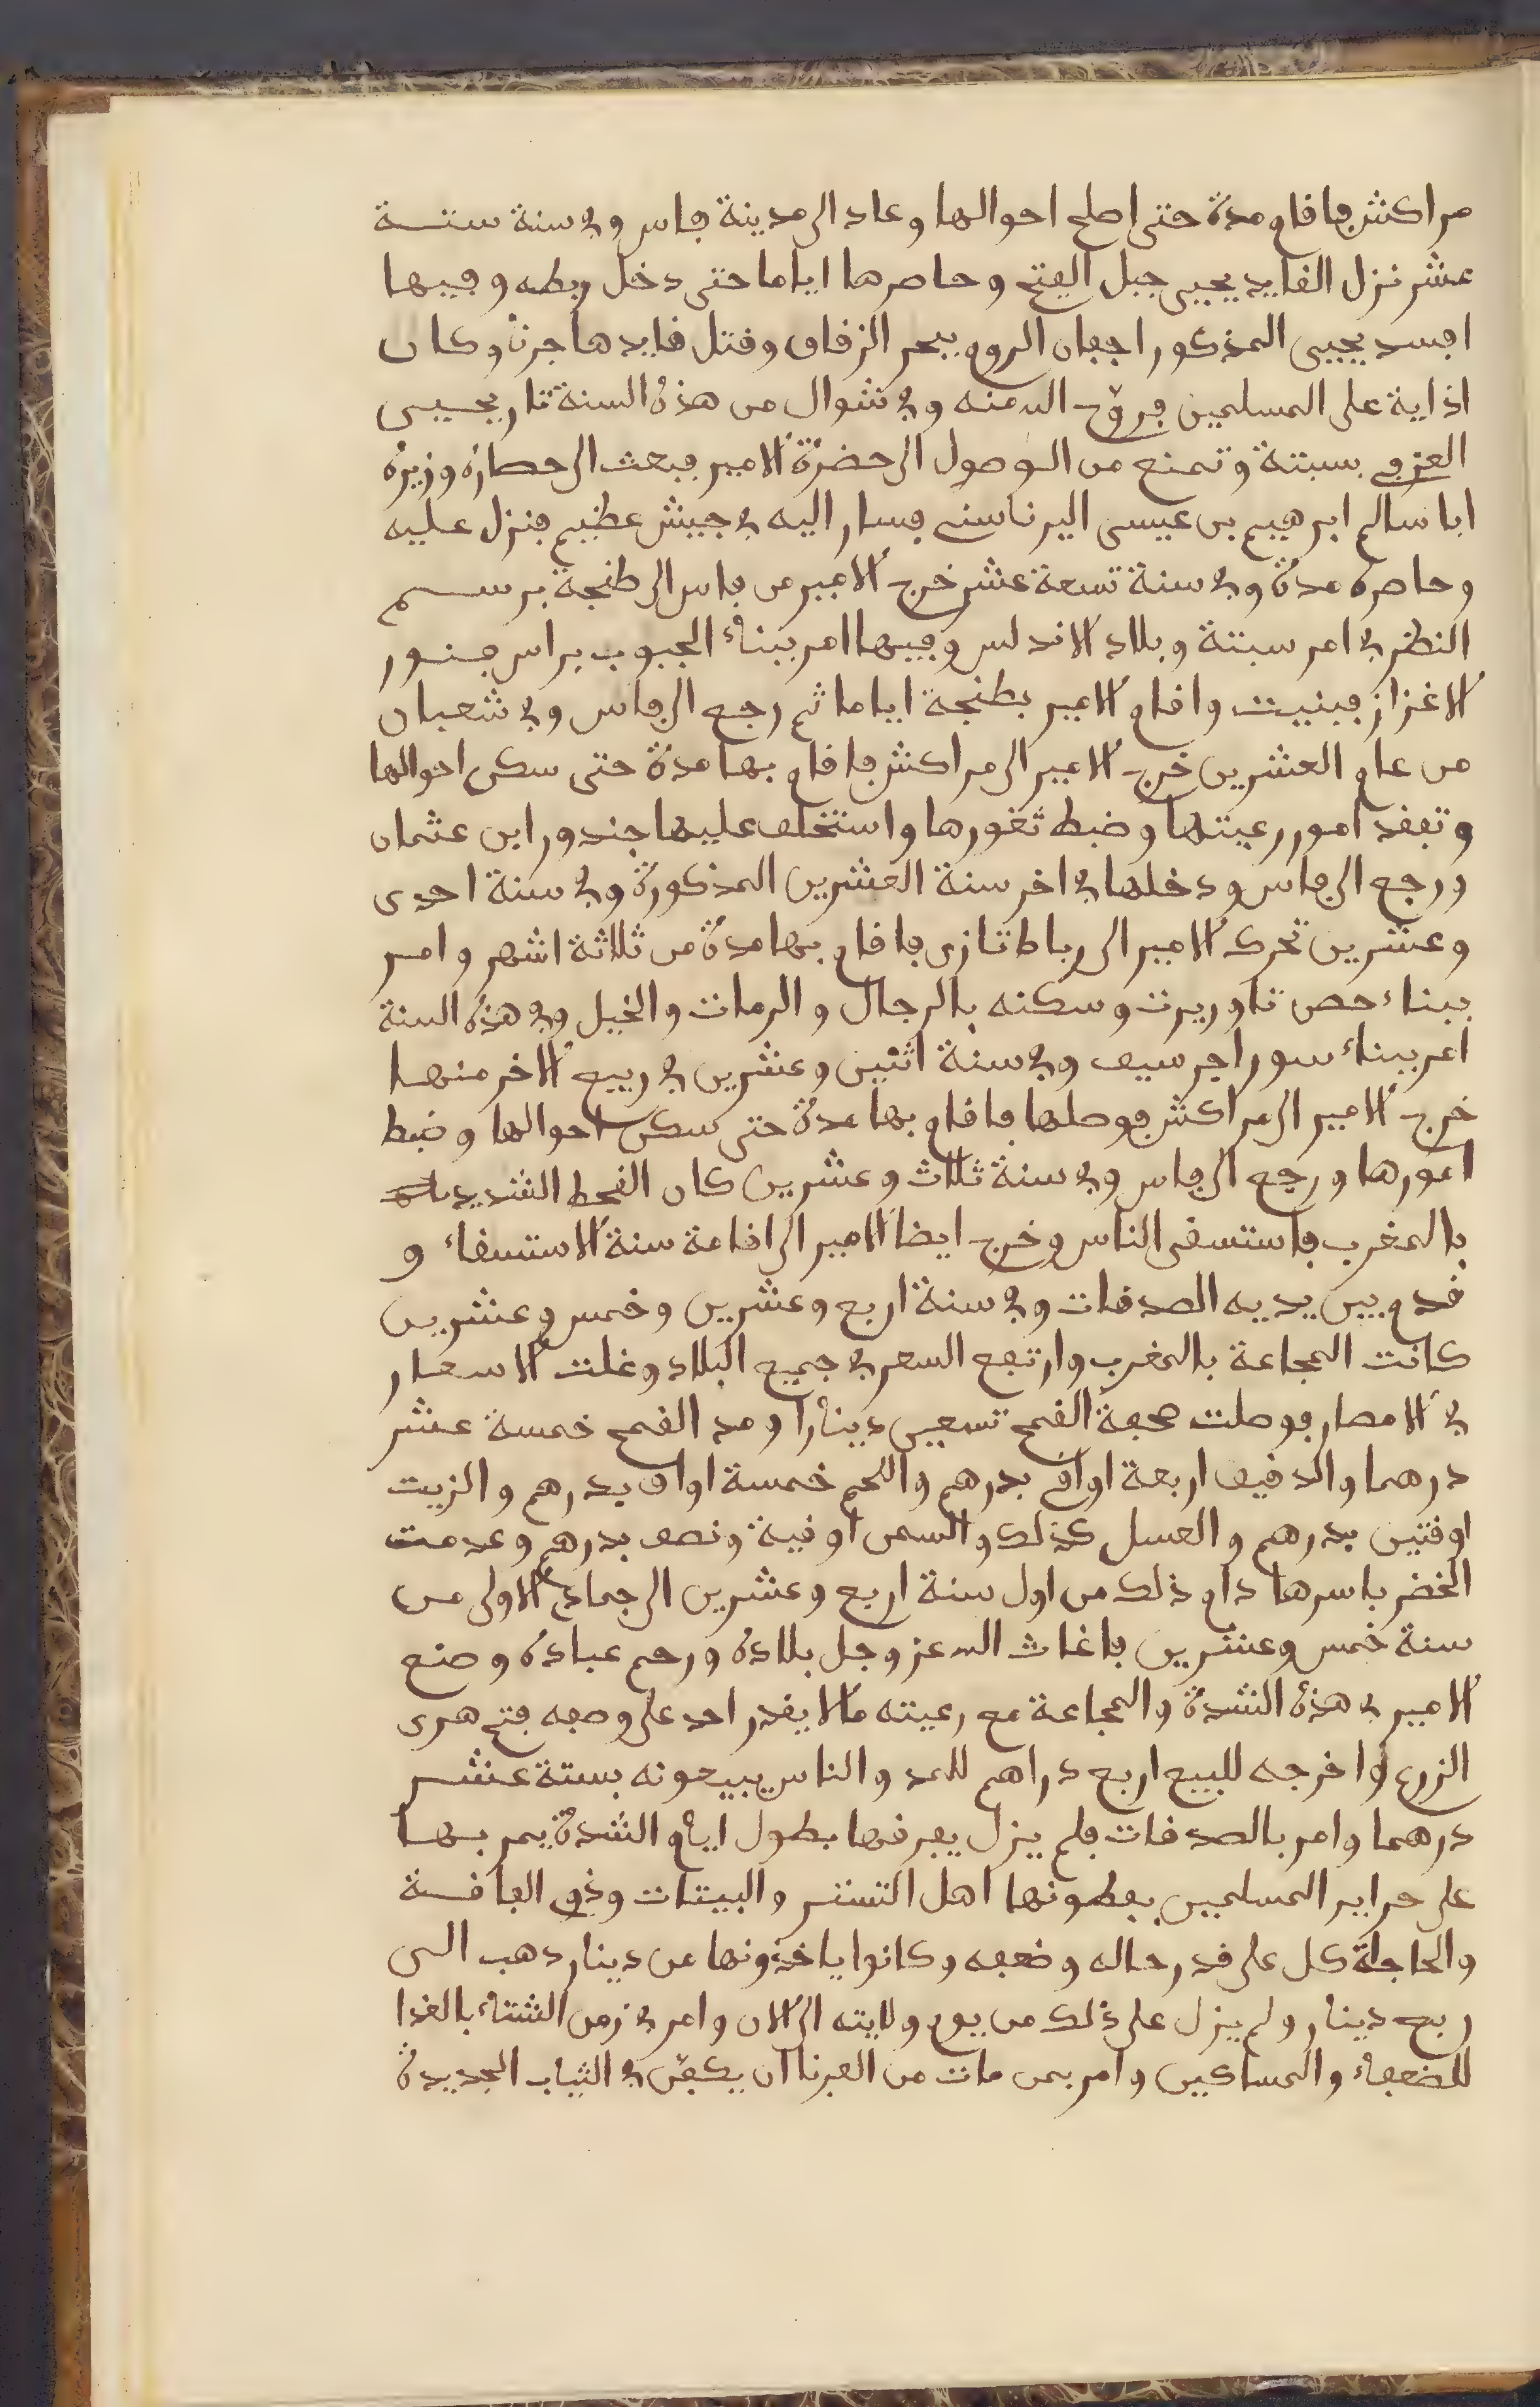 مراكش فاقام مدة حتى اصلح احوالها وعاد الى مدينة فاس وفي سنة ستـــة
عشر نزل القايد يحيى جبل الفتح وحاصرها اياما حتى دخل ربطه وفيها
افسد يحيى المذكور اجفان الروم ببحر الزقاق وقتل قايدها جرنه وكان
اذاية على المسلمين فروّح الله منه وفي شوال من هذه السنة ثار يحيى
العزفي بسبتة وتمنع من الوصول الى حضرة الامير فبعث الى حصاره وزيره
ابا سالم ابرهيم بن عيسى اليرناسني فسار اليه في جيش عظيم فنزل عليه
وحاصره مدة وفي سنة تسعة عشر خرج الامير من فاس الى طنجة برســـم
النظر في امر سبتة وبلاد الاندلس وفيها امر ببناء الجبوب براس فنــور
الاغزاز فبنيت واقام الامير بطنجة اياما ثم رجع الى فاس وفي شعبان
من عام العشرين خرج الامير الى مراكش فاقام بها مدة حتى سكن احوالها
وتفقد امور رعيتها وضبط ثغورها واستخلف عليها جندور ابن عثمان
ورجع الى فاس ودخلها في اخر سنة العشرين المذكورة وفي سنة احدى
وعشرين تحرك الامير الى رباط تازى فاقام بها مدة من ثلاثة اشهر وامــر
ببناء حصن تاوريرت وسكنه بالرجال والرمات والخيل وفي هذه السنة
امر ببناء سور اجرسيف وفي سنة اثنين وعشرين في ربيع الاخر منهـا
خرج الامير الى مراكش فوصلها فاقام بها مدة حتى سكن احوالها وضبط
امورها ورجع الى فاس وفي سنة ثلاث وعشرين كان القحط الشديد
بالمغرب فاستسقى الناس وخرج ايضا الامير الى اقامة سنة الاستسقاء و
قدم بين يديه الصدقات وفي سنة اربع وعشرين وخمس وعشرين
كانت المجاعة بالمغرب وارتفع السعر في جميع البلاد وغلت الاسعــار
في الامصار فوصلت صحفة القمح تسعين دينارا ومد القمح خمسة عشر
درهما والدقيق اربعة اواق بدرهم واللحم خمسة اواق بدرهم والزيت
اوقتين بدرهم والعسل كذلك والسمن اوقية ونصف بدرهم وعدمت
الخضر باسرها دام ذلك من اول سنة اربع وعشرين الى جمادى الاولى مــن
سنة خمس وعشرين فاغاث الله عز وجل بلاده ورحم عباده وصنع
الامير في هذه الشدة والمجاعة مع رعيته ما لا يقدر احد على وصفه فتح هرى
الزرع واخرجه للبيع اربع دراهم للمد والناس يبيعونه بستة عشــر
درهما وامر بالصدقات فلم يزل يفرقها بطول ايام الشدة يمر بهــا
على حراير المسلمين يعطونها اهل التستر والبيتات وذوي الفاقــة
والحاجة كل على قدر حاله وضعفه وكانوا ياخذونها من دينار دهب الــى
ربع دينار ولم يزل على ذلك من يوم ولايته الى الان وامر في زمن الشتاء بالغدا
للضعفاء والمساكين وامر بمن مات من الغربا ان يكفّن في الثياب الجديدة